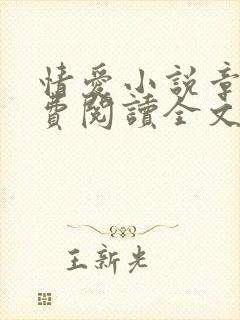 情愛小說章
費閱讀全文
王新光